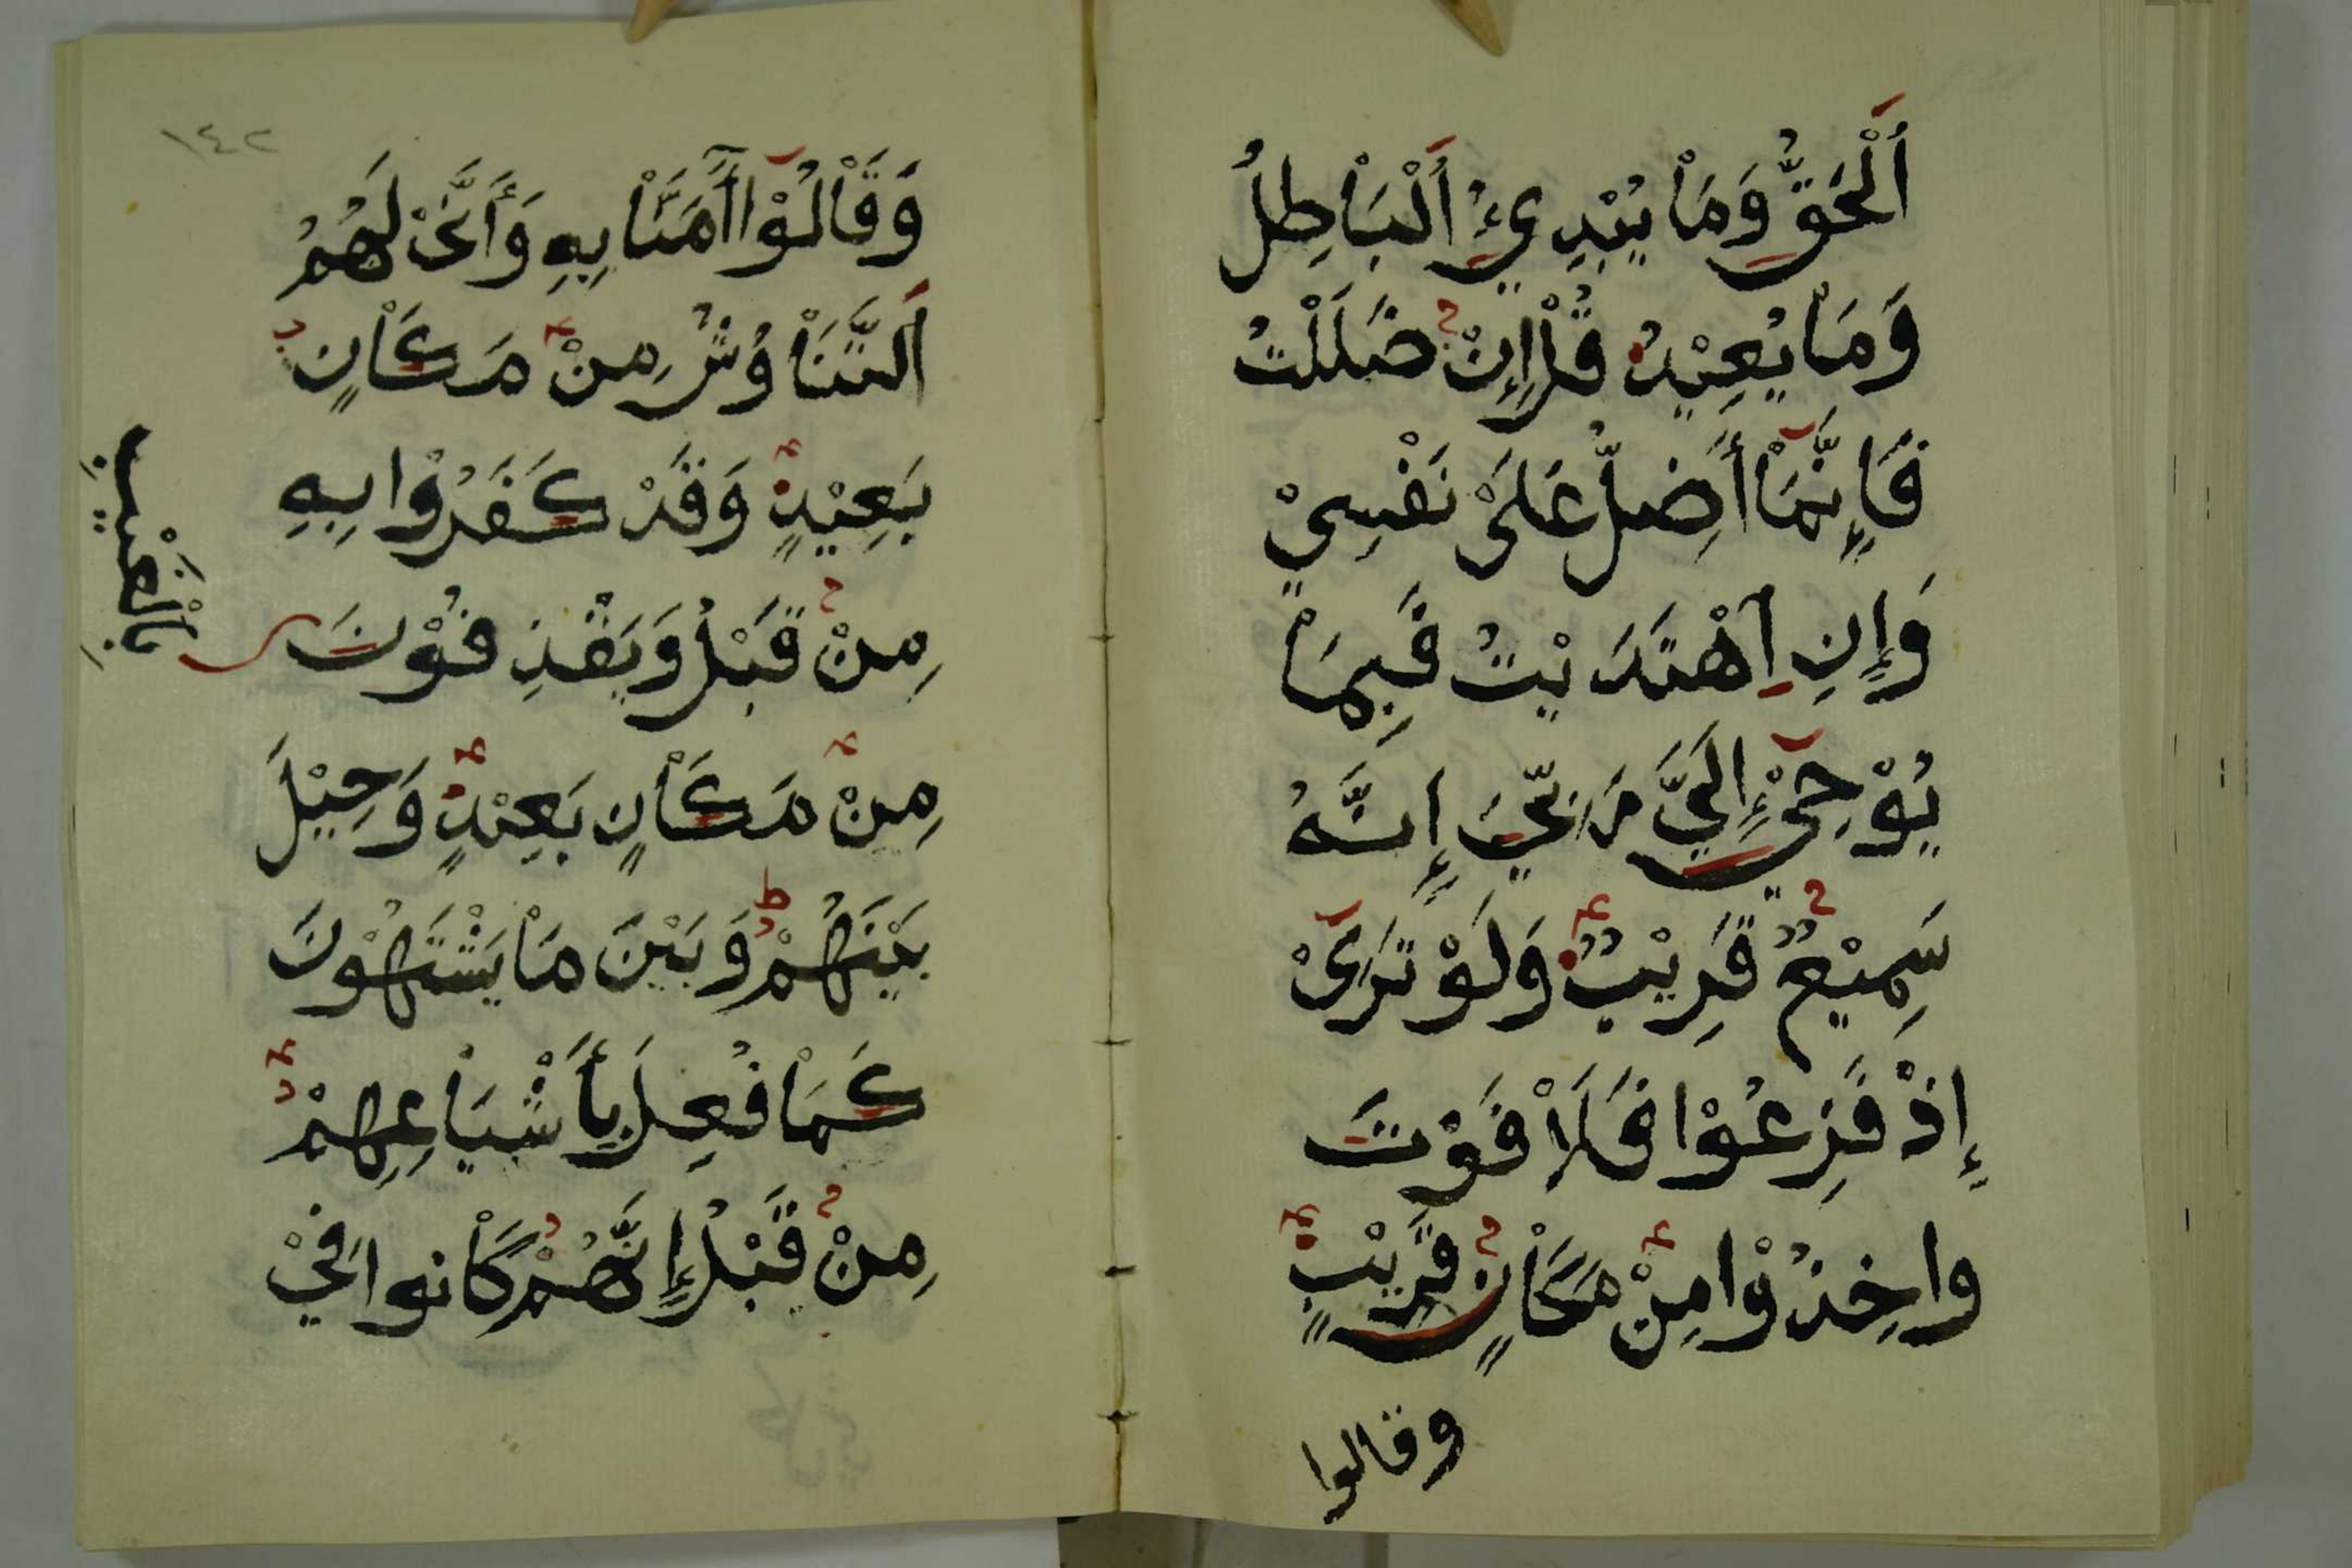 اَلْحَقُّ وَمَاْ يُبْدِئُ اَلْبَاْطِلُ
وَمَاْ يُعِيْدُ قُلْ إِنْ ضَلَلْتُ
فَإِنَّمَاْ أَضِلُّ عَلَىْ نَفْسِيْ
وَإِنِ اِهْتَدَيْتُ فَبِمَاْ
يُوْحِيْ إِلَيَّ رَبِّيَ إِنَّهُ
سَمِيْعٌ قَرِيْبٌ وَلَوْ تَرَىْ
إِذْ فَزِعُوْا فَلَاْ فَوْتَ
واخِذُوْا مِنْ مَكَاْنٍ قَرِيْبٍ
وقالوا
١٤٢
وَقَاْلُوْا آمَنَّاْ بِهِ وَأَنَّىْ لَهُمُ
اَلتَّنَاْوُشُ مِنْ مَكَاْنٍ
بَعِيْدٍ وَقَدْ كَفَرُوْا بِهِ
مِنْ قَبْلُ وَيَقْذِفُوْنَ
بِاْلْغَيْبِ
مِنْ مَكَاْنٍ بَعِيْدٍ وَحِيْلَ
بَيْنَهُمْ وَبَيْنَ مَاْ يَشْتَهُوْنَ
كَمَاْ فُعِلَ بِأَشْيَاْعِهِمْ
مِنْ قَبْلُ إِنَّهُمْ كَاْنوا فِيْ